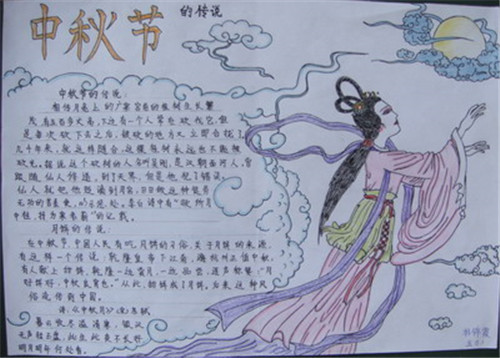 中秋节
的传说
中秋节的传说：
相传月亮上的广寒宫前的桂树生长繁
茂，有五百多丈高，下边有一个人常在砍伐它，但
是每次砍下去之后，被砍的地方又立即合拢了。
几千年来，就这样随合，这棵桂树永远也不能被
砍光。据说这个砍树的人名叫吴刚，是汉朝西河人，曾
跟随仙人修道，到了天界，但是他犯了错误，
仙人就把他贬谪到月宫，日日做这种徒劳
无功的苦差使，以示惩处。李白诗中有"欲斫月
中桂，持为寒者薪"的记载。
月饼的传说：
在中秋节，中国人民有吃月饼的习俗，关于月饼的来源
有这样一个传说：乾隆皇帝下江南，
有人献上甜饼，乾隆一边赏月，一边品尝，连声称赞："月
好饼好，中秋良宵。"从此，甜饼成了月饼，后来这种风
俗流传到中国。
苏轼
暮云收尽溢清寒，银汉
无声转玉盘，此生此夜不长好
明月明年何处看。